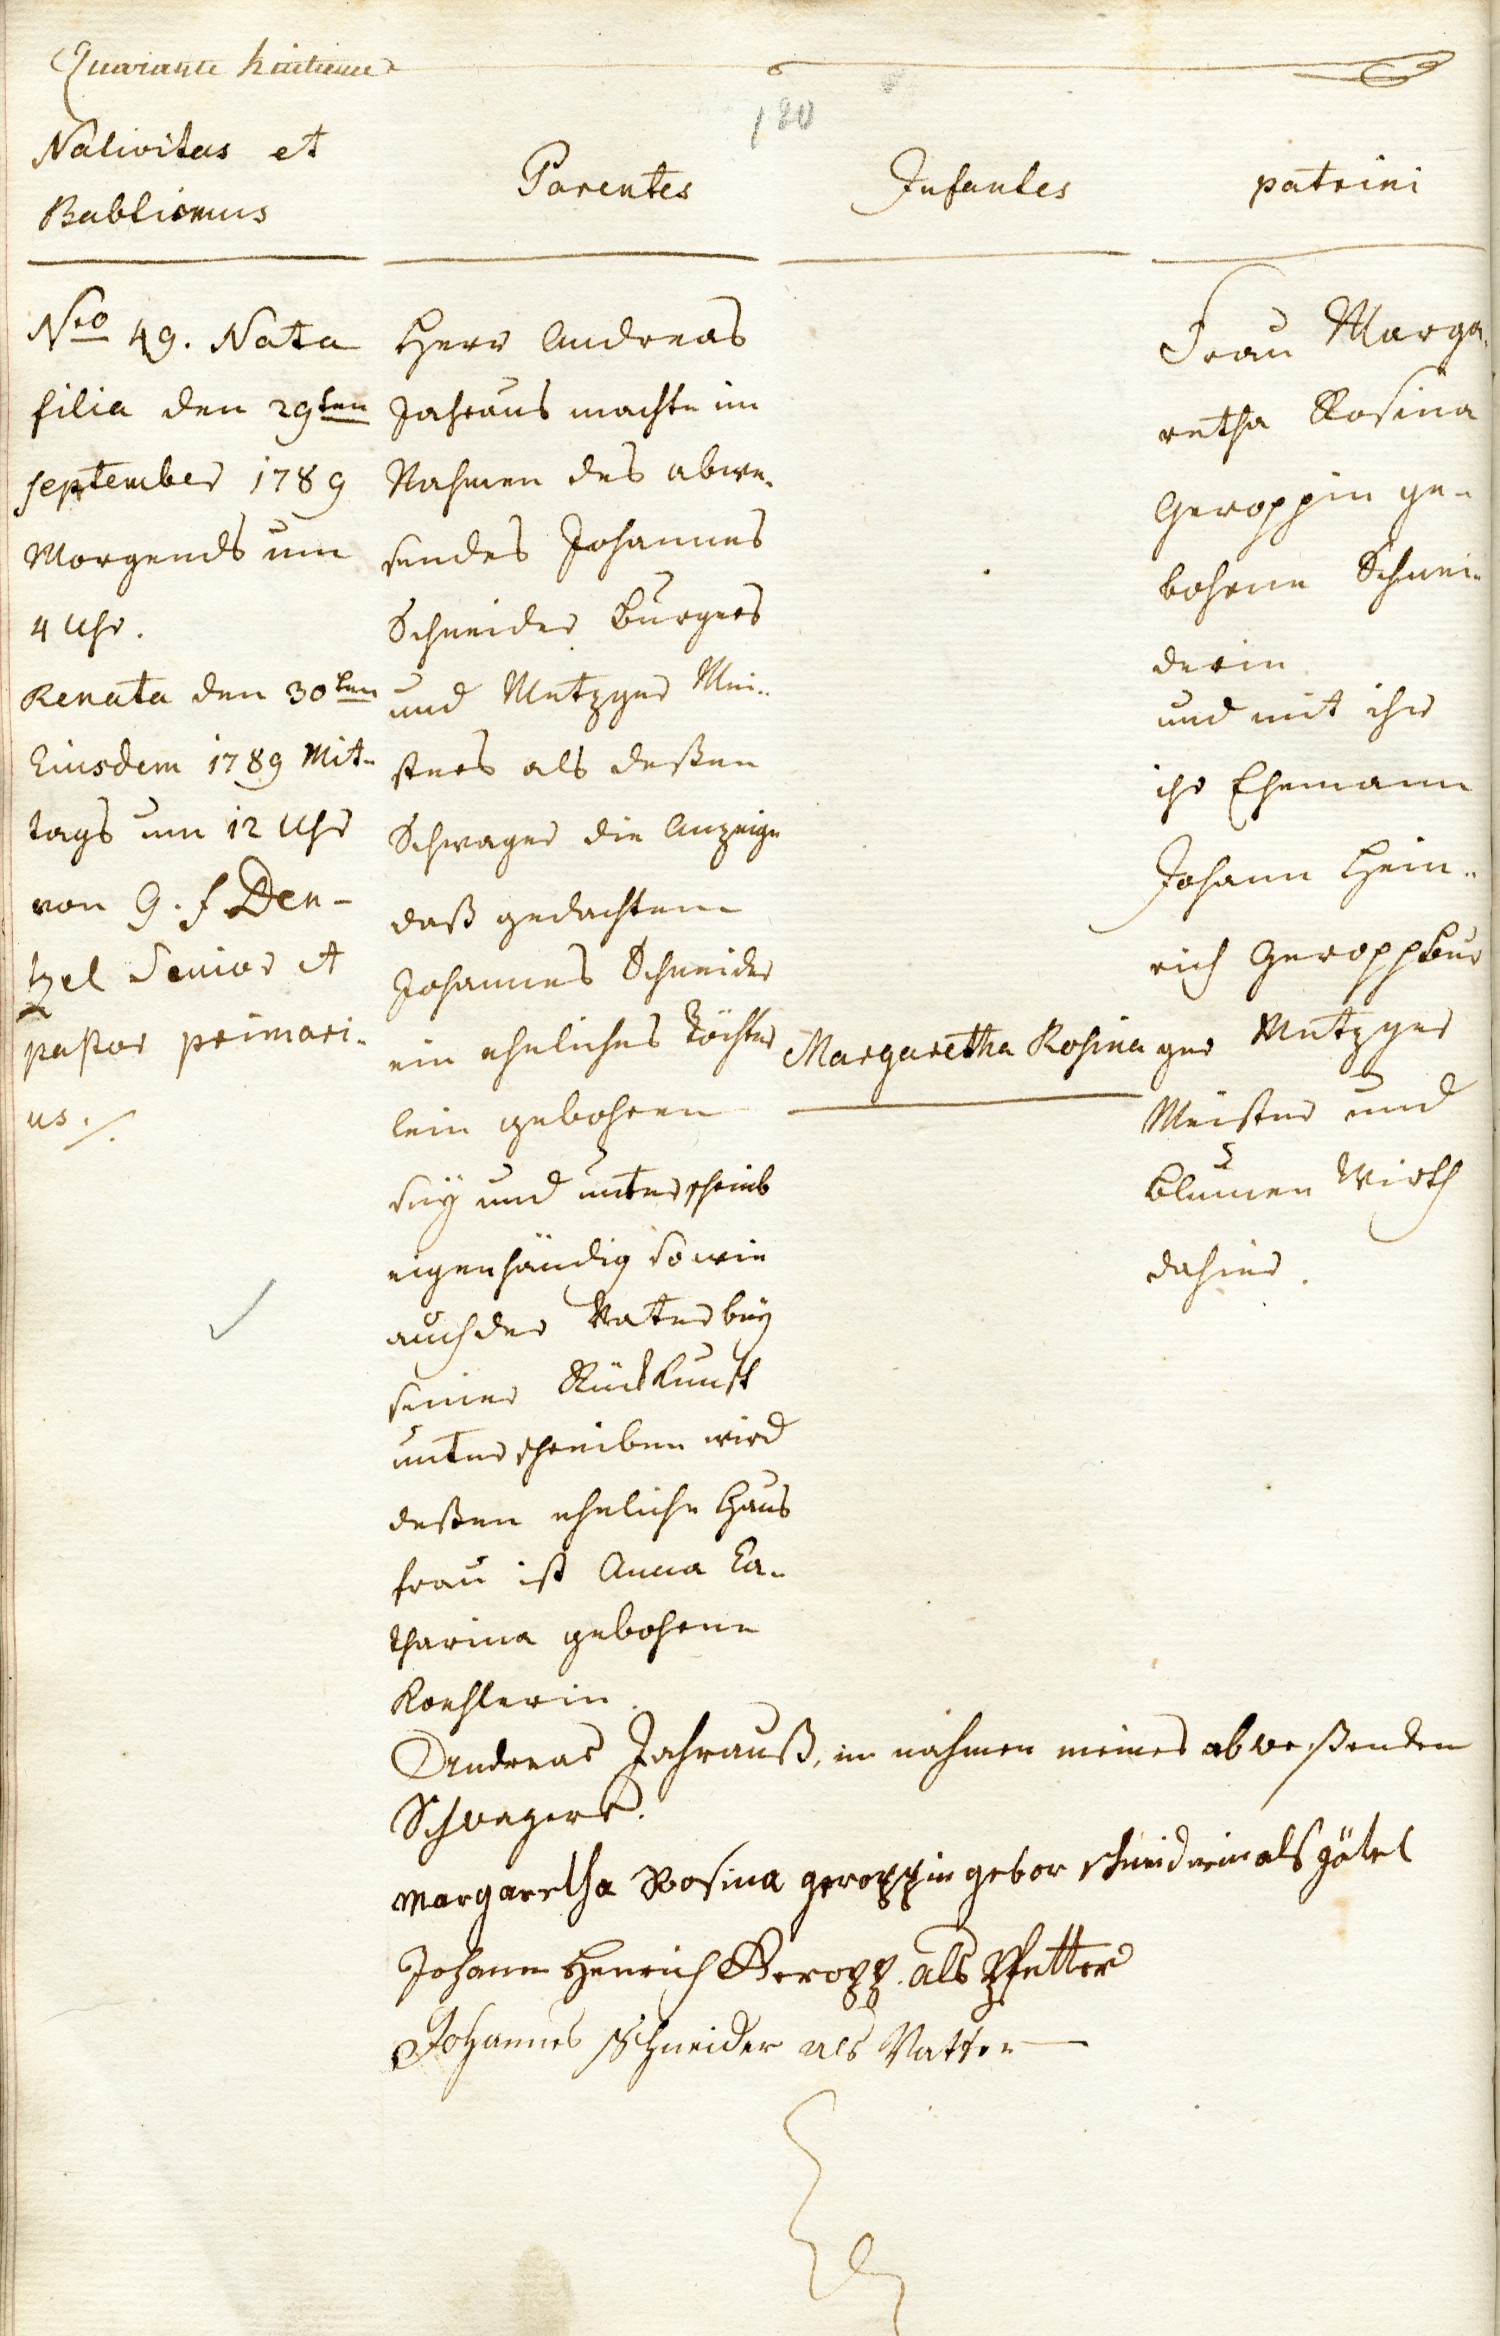 Quarante huitieme
120
Nativitas et
Babtismus
Parentes
Infantes
patrini
Nro 49. Nata
filia den 29ten
september 1789
Morgends um
4 Uhr.
Renata den 30ten
Eiusdem 1789 Mit-
tags um 12 Uhr
von G. f Den-
tzel Senior et
pastor primari-
us.
Herr Andreas
Jahraus machte im
Nahmen des abwe-
sendes Johannes
Schneider Burgers
und Metzger Mei-
sters als deßen
Schwager die Anzeige
daß gedachtem
Johannes Schneider
ein eheliches Töchter
lein gebohren
seÿ und unterschrieb
eigenhändig so wie
auch der Vater beÿ
seiner Rückkunft
unterschreiben wird
deßen eheliche Haus
frau ist Anna Ca-
tharina gebohrne
Koehlerin.
Margaretha Rosina
Frau Marga-
retha Rosina
Geroppin ge-
bohrne Schnei-
derin
und mit ihr
ihr Ehemann
Johann Hein-
rich Geropp Bur
ger Metzger
Meister und
Blumen Wirth
dahier.
Andreas Jahrauß, im nahmen meines abweßenden
Schwagers.
Margaretha Rosina geroppin gebor schneiderin als götel
Johann Henrich Geropp. als Pfetter
Johannes Schneider als Vatter